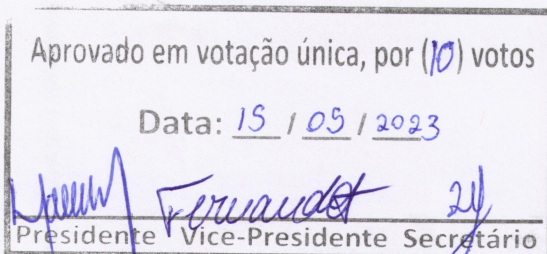 Aprovado em votação única, por (10) votos
Data: 15 / 05 / 2023
Fernandes
Presidente Vice-Presidente Secretário